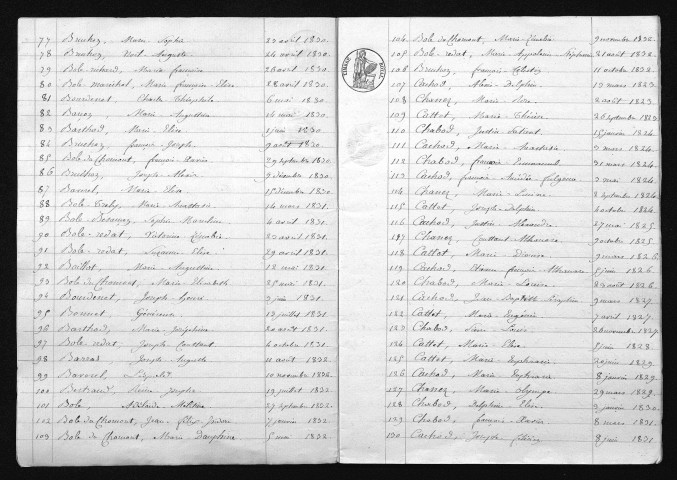 77 Bruchez, Marie Sophie 22 août 1830.
78 Bruchez, Noël Auguste 24 août 1830.
79 Bole-richard, Marie françoise 26 août 1830.
80 Bole-marichal, Marie françoise Elise 28 août 1830.
81 Bourdenet, Charles Théophile 6 mai 1830.
82 Marie Augustine 14 mai 1830.
83 Barthod, Marie Elise 1 juin 1830.
84 Bruchez, françois Joseph 9 août 1830.
85 Bole du Chomont, françois Xavier 29 septembre 1830
86 Bruchez, Joseph Alexis 9 décembre 1830.
87 Barnel, Marie Elise 15 décembre 1830
88 Bole Marie Anasthasie 14 mars 1831.
89 Bole-Besançon, Sophie 4 août 1831.
90 Bole-redat, Victorine 22 avril 1831.
91 Bole-redat, Elise 29 avril 1831.
92 Baillot, Marie Augustine 12 mai 1831.
93 Bole du Chomont, Marie Elisabeth 25 mai 1831.
94 Bourdenet, Joseph 2 juin 1831.
95 Bonnet 12 juillet 1831.
96 Barthod, Marie Joséphine 20 août 1831.
97 Bole-redat, Joseph Constant 4 octobre 1831.
98 Barras Joseph Auguste 11 août 1832.
99 Barnel, Léopold 10 novembre 1832.
100 Bertraud, Joseph 19 juillet 1832
101 Bole, Adélaïde 27 septembre 1832.
102 Bole du Chomont, Jean félix Isidore 7 janvier 1832
103 Bole du Chomont, Marie Dauphine 5 mai 1832
104 Bole du Chomont, Marie 9 novembre 1832.
105 Bole-redat, Marie Appolonie 31 août 1832.
106 Bruchez, françois Célestin 11 octobre 1832.
107 Cachod, Alexis Delphin 13 mars 1823.
108 Chanez, Marie 2 août 1823.
109 Cattet, Marie Thérèse 26 septembre 1823
110 Chabod, Justin 15 janvier 1824.
111 Cachod, Marie Anasthasie 3 mars 1824.
112 Chabod, françois Emmanuel 31 mars 1824.
113 Cachod, françois Fulgence 2 mai 1824
114 Chanez, Marie Louise 8 septembre 1824
115 Cattet, Joseph Delphin 4 octobre 1824.
116 Cachod, Justin Alexandre 27 mai 1825.
117 Chanez, Constant Athanase 9 octobre 1825.
118 Cattet, Marie 9 mars 1826.
119 Cachod, françois Athanase 5 juin 1826.
120 Chabod, Marie Louise 29 août 1826.
121 Cachod, Jean Baptiste Séraphin 9 mars 1827.
122 Cattet, Marie Eugénie 7 avril 1827.
123 Chabod, Louis 26 novembre 1827.
124 Cattet, Marie Elise 5 juin 1828.
125 Cattet, Marie Euphrasie 1829.
126 Cachod, Marie Euphrasie 8 janvier 1829.
127 Chanez, Marie Olympe 29 mars 1829.
128 Chabod, Delphine Elise 3 janvier 1830.
129 Chabod, françois Xavier 8 mars 1831.
130 Cachod, Joseph 8 juin 1831.
TIMBRE ROYAL